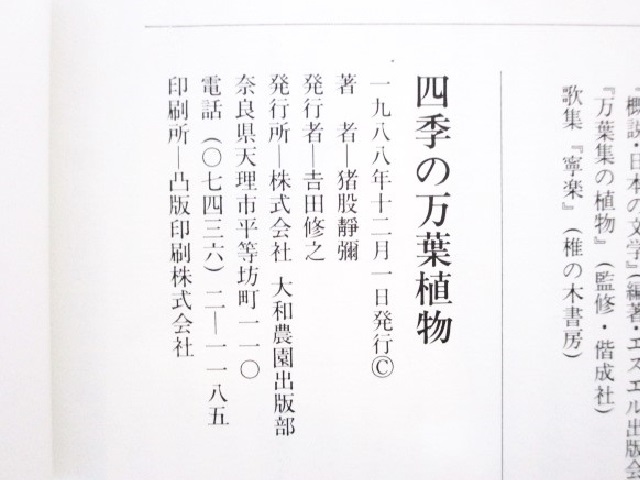 『概説・日本の文学』（編著・エスエル出版会
『万葉集の植物』（監修・偕成社）
歌集『寧楽』（椎の木書房）
四季の万葉植物
一九八八年十二月一日発行©
著　者―猪股靜彌
発行者―吉田修之
発行所―株式会社 大和農園出版部
奈良県天理市平等坊町一一〇
電話（〇七四三六）二―一一八五
印刷所―凸版印刷株式会社